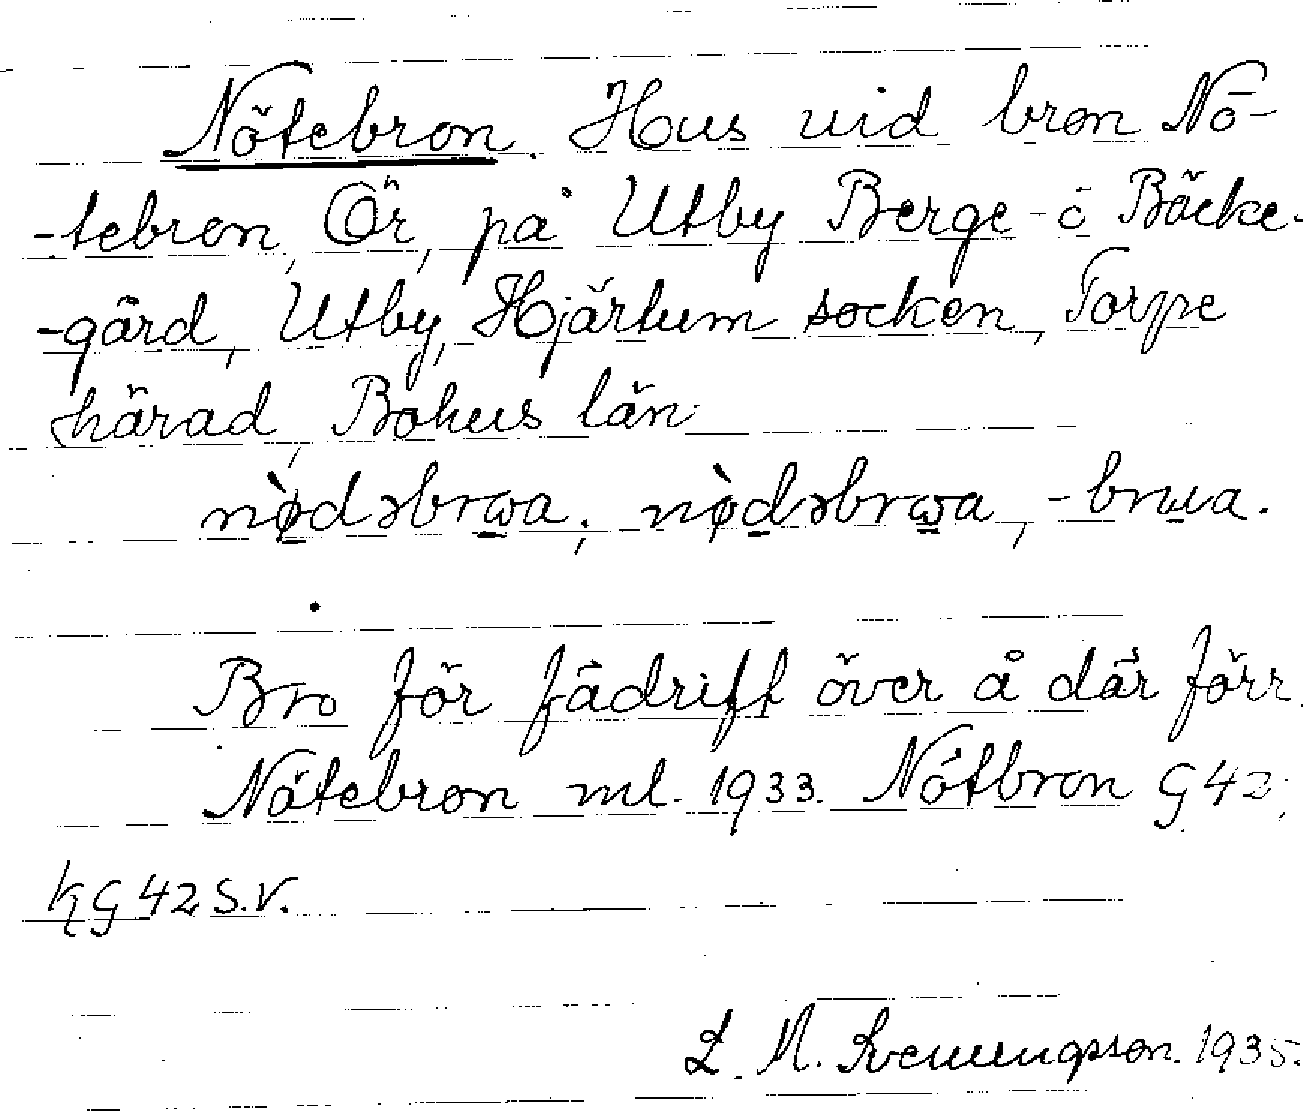 Nötebron. Hus vid bron Nö-
-tebron, Ör, på Utby Berge- o Bäcke-
-gård, Utby, Hjärtum socken, Torpe
härad, Bohus län
nø̀dəbrɷa; nø̀dəbrɷa, -brua.
Bro för fädrift över å där förr.
Nötebron ml. 1933. Nötbron G 42;
KG 42 S.V.
L. M. Svenungsson. 1935.